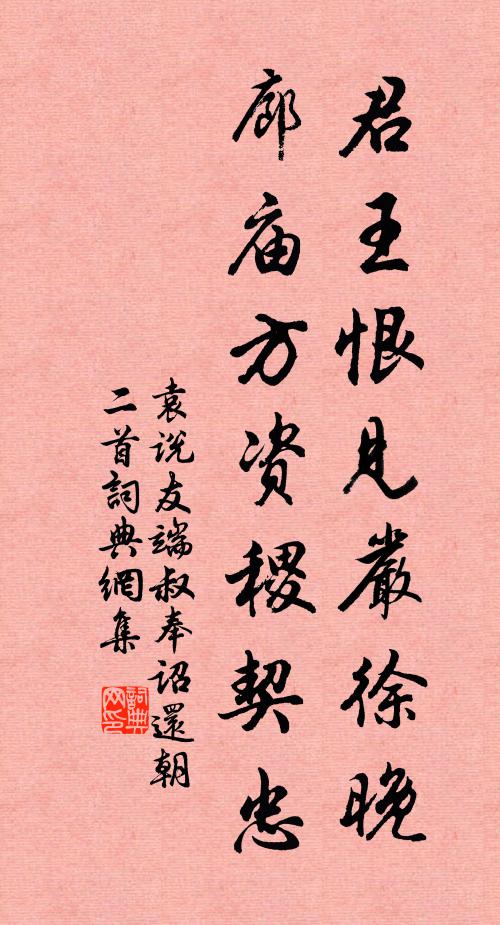 君王恨见嚴徐晚
廊庙方资稷契忠
袁说友端叔奉诏還朝
二首詞典網集
詞典
网印